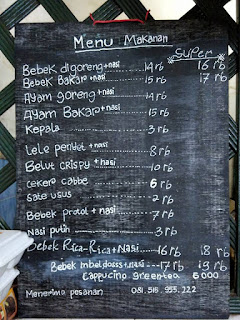 Menu Makanan
Super
Bebek digoreng+nasi 14 rb 16 rb
Bebek Bakar+nasi 15 rb 17 rb
Ayam goreng+nasi 14 rb
Ayam Bakar+nasi 15 rb
Kepala 3 rb
Lele penyot+nasi 8 rb
Belut crispy+nasi 10 rb
ceker cabbe 6 rb
Sate usus 2 rb
Bebek protol+nasi 7 rb
Nasi putih 3 rb
Bebek Rica-Rica+Nasi 16 rb 18 rb
Bebek mbeldosss+nasi 17 rb 19 rb
Cappucino greentea 5000
Menerima pesanan 081.515.955.222